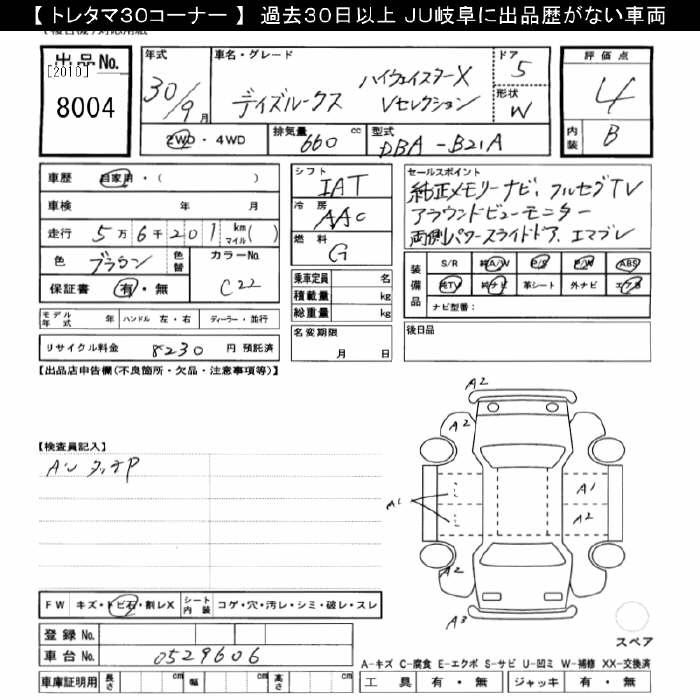 【 トレタマ30コーナー 】 過去30日以上 JU岐阜に出品歴がない車両
出品No.
[2010]
8004
年式
30/9月
車名・グレード
デイズルークス
ハイウェイスターX
Vセレクション
ドア
5
形状
W
評価点
4
内装
B
2WD・4WD
排気量 660 cc
型式 DBA-B21A
車歴 自家用・( )
車検 年 月
走行 5万6千201 km マイル( )
色 ブラウン 色替
カラーNo. C22
保証書 有・無
シフト
IAT
冷房
AAC
燃料
G
乗車定員 名
積載量 kg
総重量 kg
セールスポイント
純正メモリーナビ、フルセグTV
アラウンドビューモニター
両側パワースライドドア、エマブレ
装備品
S/R 純A/W P/S P/W ABS
純TV 純ナビ 革シート 外ナビ エアB
ナビ型番:
モデル年式 年 ハンドル 左・右 ディーラー・並行
名変期限
月 日
後日品
リサイクル料金 8230 円 預託済
【出品店申告欄(不良箇所・欠品・注意事項等)】
【検査員記入】
A・U タッチP
A2
A2
A1
A1
A2
A2
A3
スペア
FW キズ・トビ石・割レX
シート内装 コゲ・穴・汚レ・シミ・破レ・スレ
登録No.
車台No. 0529606
車庫証明用 長さ cm 幅 cm 高さ cm
A-キズ C-腐食 E-エクボ S-サビ U-凹ミ W-補修 XX-交換済
工具 有・無 ジャッキ 有・無